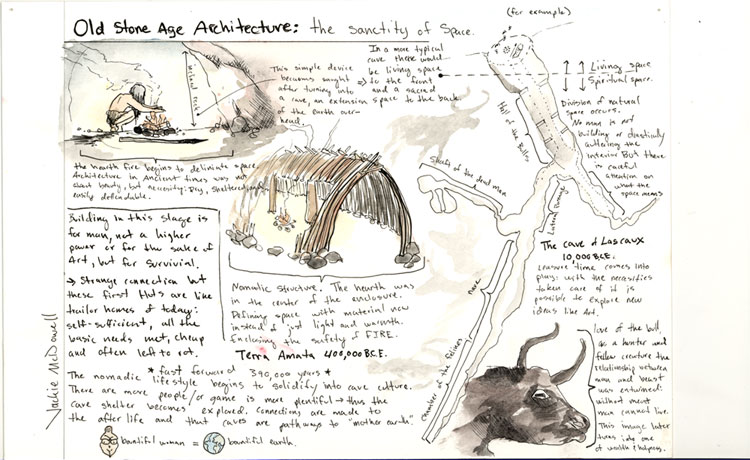 Old Stone Age Architecture: the sanctity of space.
(for example)
without rock
This simple device
becomes sought
after turning into
a cave, an extension
of the earth over-
head.
In a more typical
cave there would
be living space
to the front
and a sacred
space to the back.
Living space
Spiritual space.
Division of natural
space occurs.
No man is not
building or drastically
altering the
interior But there
is careful
attention on
what the
space means
the hearth fire begins to deliniate space
Architecture in Ancient times was not
about beauty, but necessity: Dry, sheltered and
easily defendable.
Hall of the Bulls
Shaft of the dead man
Lateral Passage
nave
chamber of the felines
Building in this stage is
for man, not a higher
power or for the sake of
Art, but for survivial.
→ Strange connection but
these first Huts are like
trailor homes of today:
self-sufficient, all the
basic needs met, cheap
and often left to rot.
Nomatic structure. The hearth was
in the center of the enclosure.
Defining space with material now
instead of just light and warmth.
Enclosing the safety of FIRE.
Terra Amata 400,000 B.C.E.
The cave of Lascaux
10,000 B.C.E.
Leasure time comes into
play: with the necessities
taken care of it is
possible to explore new
ideas like Art.
love of the bull,
as a hunter and
fellow creature the
relationship between
man and beast
was entwined:
without meat
man cannot live.
This image later
turns into one
of wealth &
* fast forward 390,000 years *
The nomadic lifestyle begins to solidify into cave culture.
There are more people/or game is more plentiful → thus the
cave shelter becomes explored. Connections are made to
the after life and that caves are pathways to "mother earth".
bountiful woman = bountiful earth.
Jackie McDowell